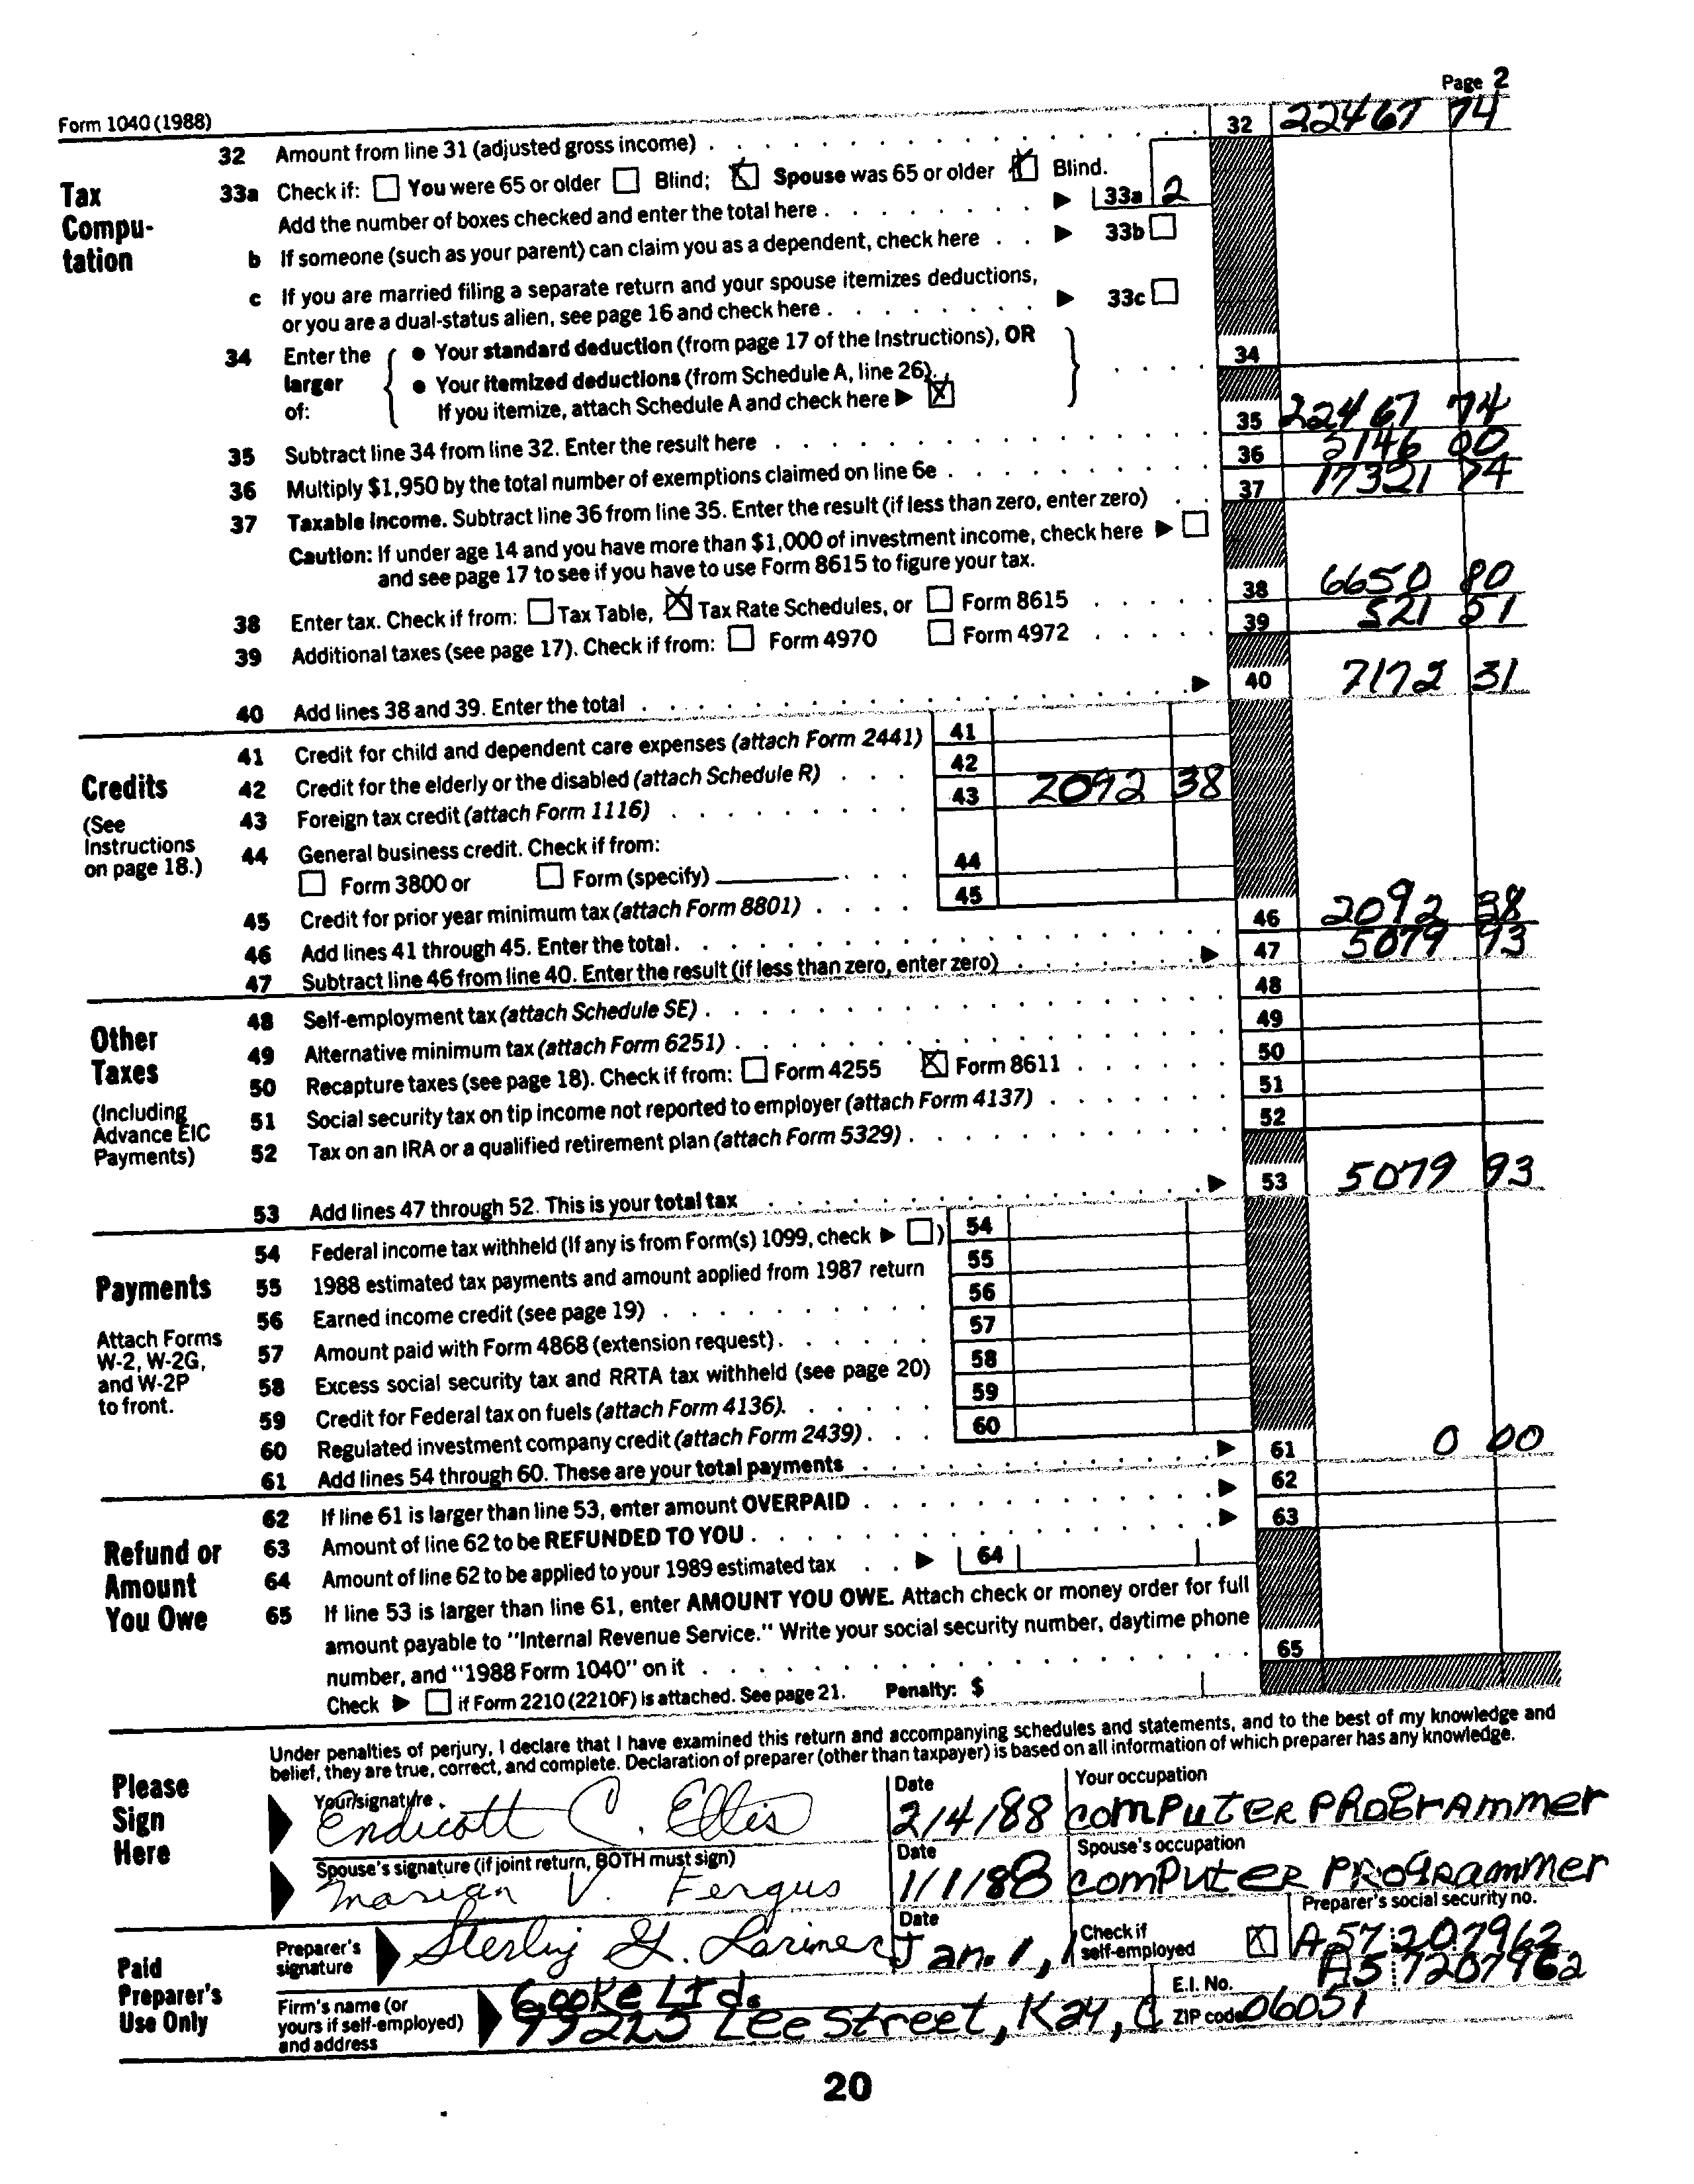 Page 2
Form 1040 (1988)
32 Amount from line 31 (adjusted gross income) 32 22467 74
Tax Compu-tation
33a Check if: You were 65 or older Blind; Spouse was 65 or older Blind.
Add the number of boxes checked and enter the total here 33a 2
b If someone (such as your parent) can claim you as a dependent, check here 33b
c If you are married filing a separate return and your spouse itemizes deductions,
or you are a dual-status alien, see page 16 and check here 33c
34 Enter the larger of: • Your standard deduction (from page 17 of the Instructions), OR 34
• Your itemized deductions (from Schedule A, line 26).
If you itemize, attach Schedule A and check here
35 Subtract line 34 from line 32. Enter the result here 35 22467 74
36 Multiply $1,950 by the total number of exemptions claimed on line 6e 36 5146 00
37 Taxable income. Subtract line 36 from line 35. Enter the result (if less than zero, enter zero) 37 17321 74
Caution: If under age 14 and you have more than $1,000 of investment income, check here
and see page 17 to see if you have to use Form 8615 to figure your tax.
38 Enter tax. Check if from: Tax Table, Tax Rate Schedules, or Form 8615 38 6650 80
39 Additional taxes (see page 17). Check if from: Form 4970 Form 4972 39 521 51
40 Add lines 38 and 39. Enter the total 40 7172 31
Credits
(See Instructions on page 18.)
41 Credit for child and dependent care expenses (attach Form 2441) 41
42 Credit for the elderly or the disabled (attach Schedule R) 42
43 Foreign tax credit (attach Form 1116) 43 2092 38
44 General business credit. Check if from:
Form 3800 or Form (specify) 44
45 Credit for prior year minimum tax (attach Form 8801) 45
46 Add lines 41 through 45. Enter the total. 46 2092 38
47 Subtract line 46 from line 40. Enter the result (if less than zero, enter zero) 47 5079 93
Other Taxes
(Including Advance EIC Payments)
48 Self-employment tax (attach Schedule SE) 48
49 Alternative minimum tax (attach Form 6251) 49
50 Recapture taxes (see page 18). Check if from: Form 4255 Form 8611 50
51 Social security tax on tip income not reported to employer (attach Form 4137) 51
52 Tax on an IRA or a qualified retirement plan (attach Form 5329) 52
53 Add lines 47 through 52. This is your total tax 53 5079 93
Payments
Attach Forms W-2, W-2G, and W-2P to front.
54 Federal income tax withheld (If any is from Form(s) 1099, check ) 54
55 1988 estimated tax payments and amount applied from 1987 return 55
56 Earned income credit (see page 19) 56
57 Amount paid with Form 4868 (extension request) 57
58 Excess social security tax and RRTA tax withheld (see page 20) 58
59 Credit for Federal tax on fuels (attach Form 4136). 59
60 Regulated investment company credit (attach Form 2439) 60
61 Add lines 54 through 60. These are your total payments 61 0 00
Refund or Amount You Owe
62 If line 61 is larger than line 53, enter amount OVERPAID 62
63 Amount of line 62 to be REFUNDED TO YOU 63
64 Amount of line 62 to be applied to your 1989 estimated tax 64
65 If line 53 is larger than line 61, enter AMOUNT YOU OWE. Attach check or money order for full
amount payable to "Internal Revenue Service." Write your social security number, daytime phone
number, and "1988 Form 1040" on it 65
Check if Form 2210 (2210F) is attached. See page 21. Penalty: $
Please Sign Here
Under penalties of perjury, I declare that I have examined this return and accompanying schedules and statements, and to the best of my knowledge and
belief, they are true, correct, and complete. Declaration of preparer (other than taxpayer) is based on all information of which preparer has any knowledge.
Your signature Date Your occupation
Endicott C. Ellis 2/4/88 computer programmer
Spouse's signature (if joint return, BOTH must sign) Date Spouse's occupation
Marian V. Fergus 1/1/88 computer programmer
Paid Preparer's Use Only
Preparer's signature Sterling G. Lorimer Date Jan. 1, 1 Check if self-employed Preparer's social security no. A57 207962
Firm's name (or yours if self-employed) and address Cooke Ltd. E.I. No. A5 7207962
99225 Lee Street, Kay, C ZIP code 06051
20